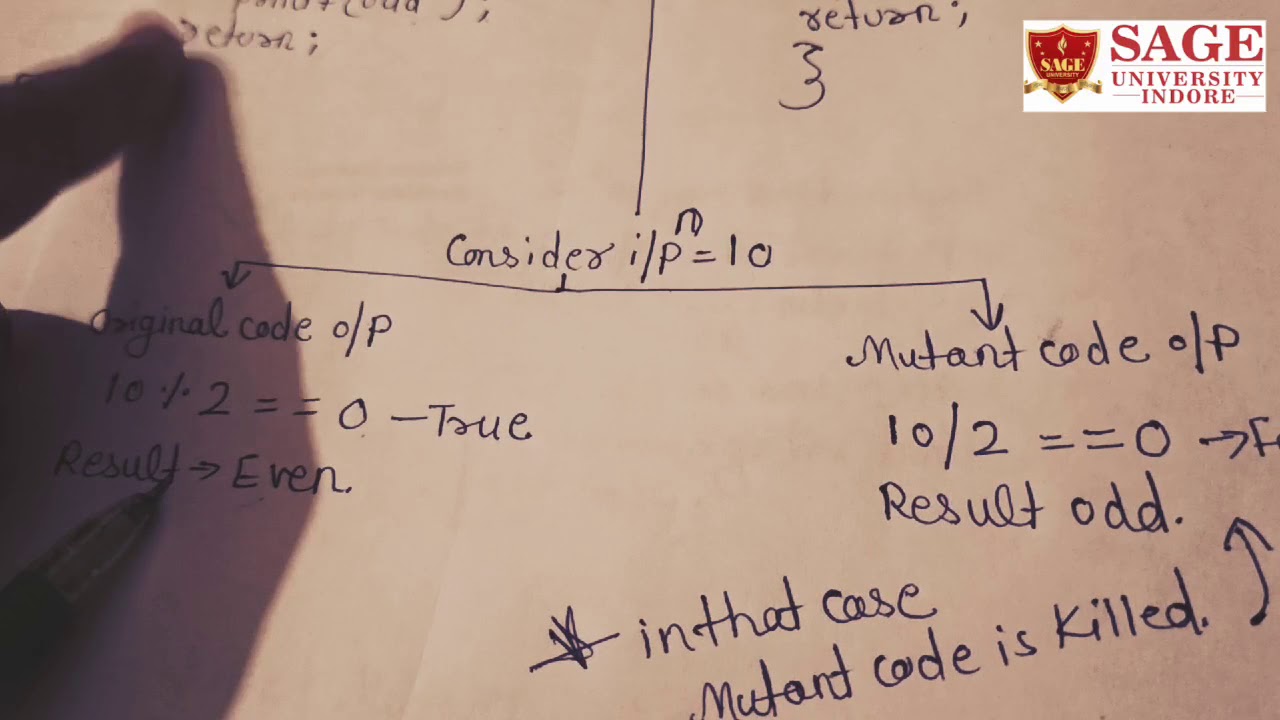 return;
return;
}
SAGE
UNIVERSITY
INDORE
SAGE
UNIVERSITY
Consider i/P n = 10
Original code o/P
10 % 2 == 0 – True
Result → Even.
Mutant code o/P
10/2 == 0 →
Result odd.
in that case
Mutant code is Killed.